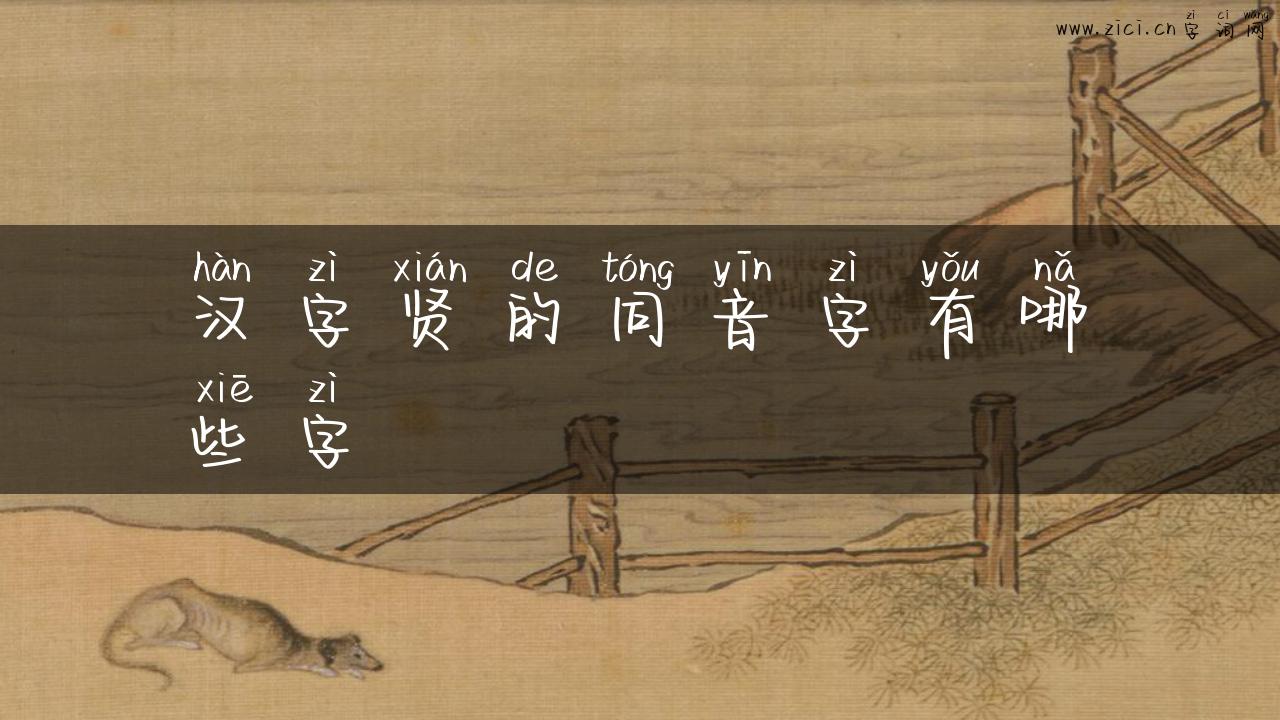 zì cí wǎng
www.zici.cn字词网
hàn zì xián de tóng yīn zì yǒu nǎ
汉字贤的同音字有哪
xiē zì
些字